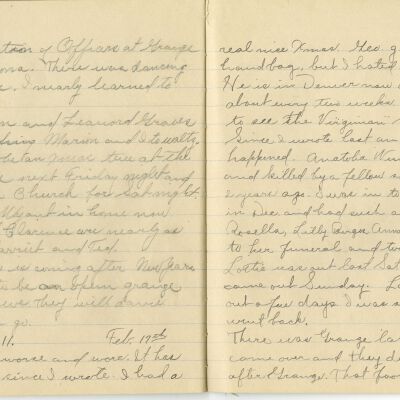 of Officers at Grange
There was dancing
I nearly learned to
and Leanord Graves
Marion and I to waltz.
at the
next Friday night and
Church for Sat night.
out in home now
Clarence are nearly as
Harriet and Ted.
is coming after New Years
to be an open grange
They will dance
go.
11. Feb. 17th
worse and worse. It has
since I wrote. I had a
real nice Xmas. Geo. g
handbag, but I hated
He is in Denver now
about every two weeks
to see the Virginian
Since I wrote last an
happened.
and killed by a fellow s
2 years ago. I was in to
in Dec and had such a
Rosella, Lilly
to her funeral and tw
was out last Sat
came out Sunday.
out a few days I was s
went back.
There was Grange la
came over and they d
after Grange. That